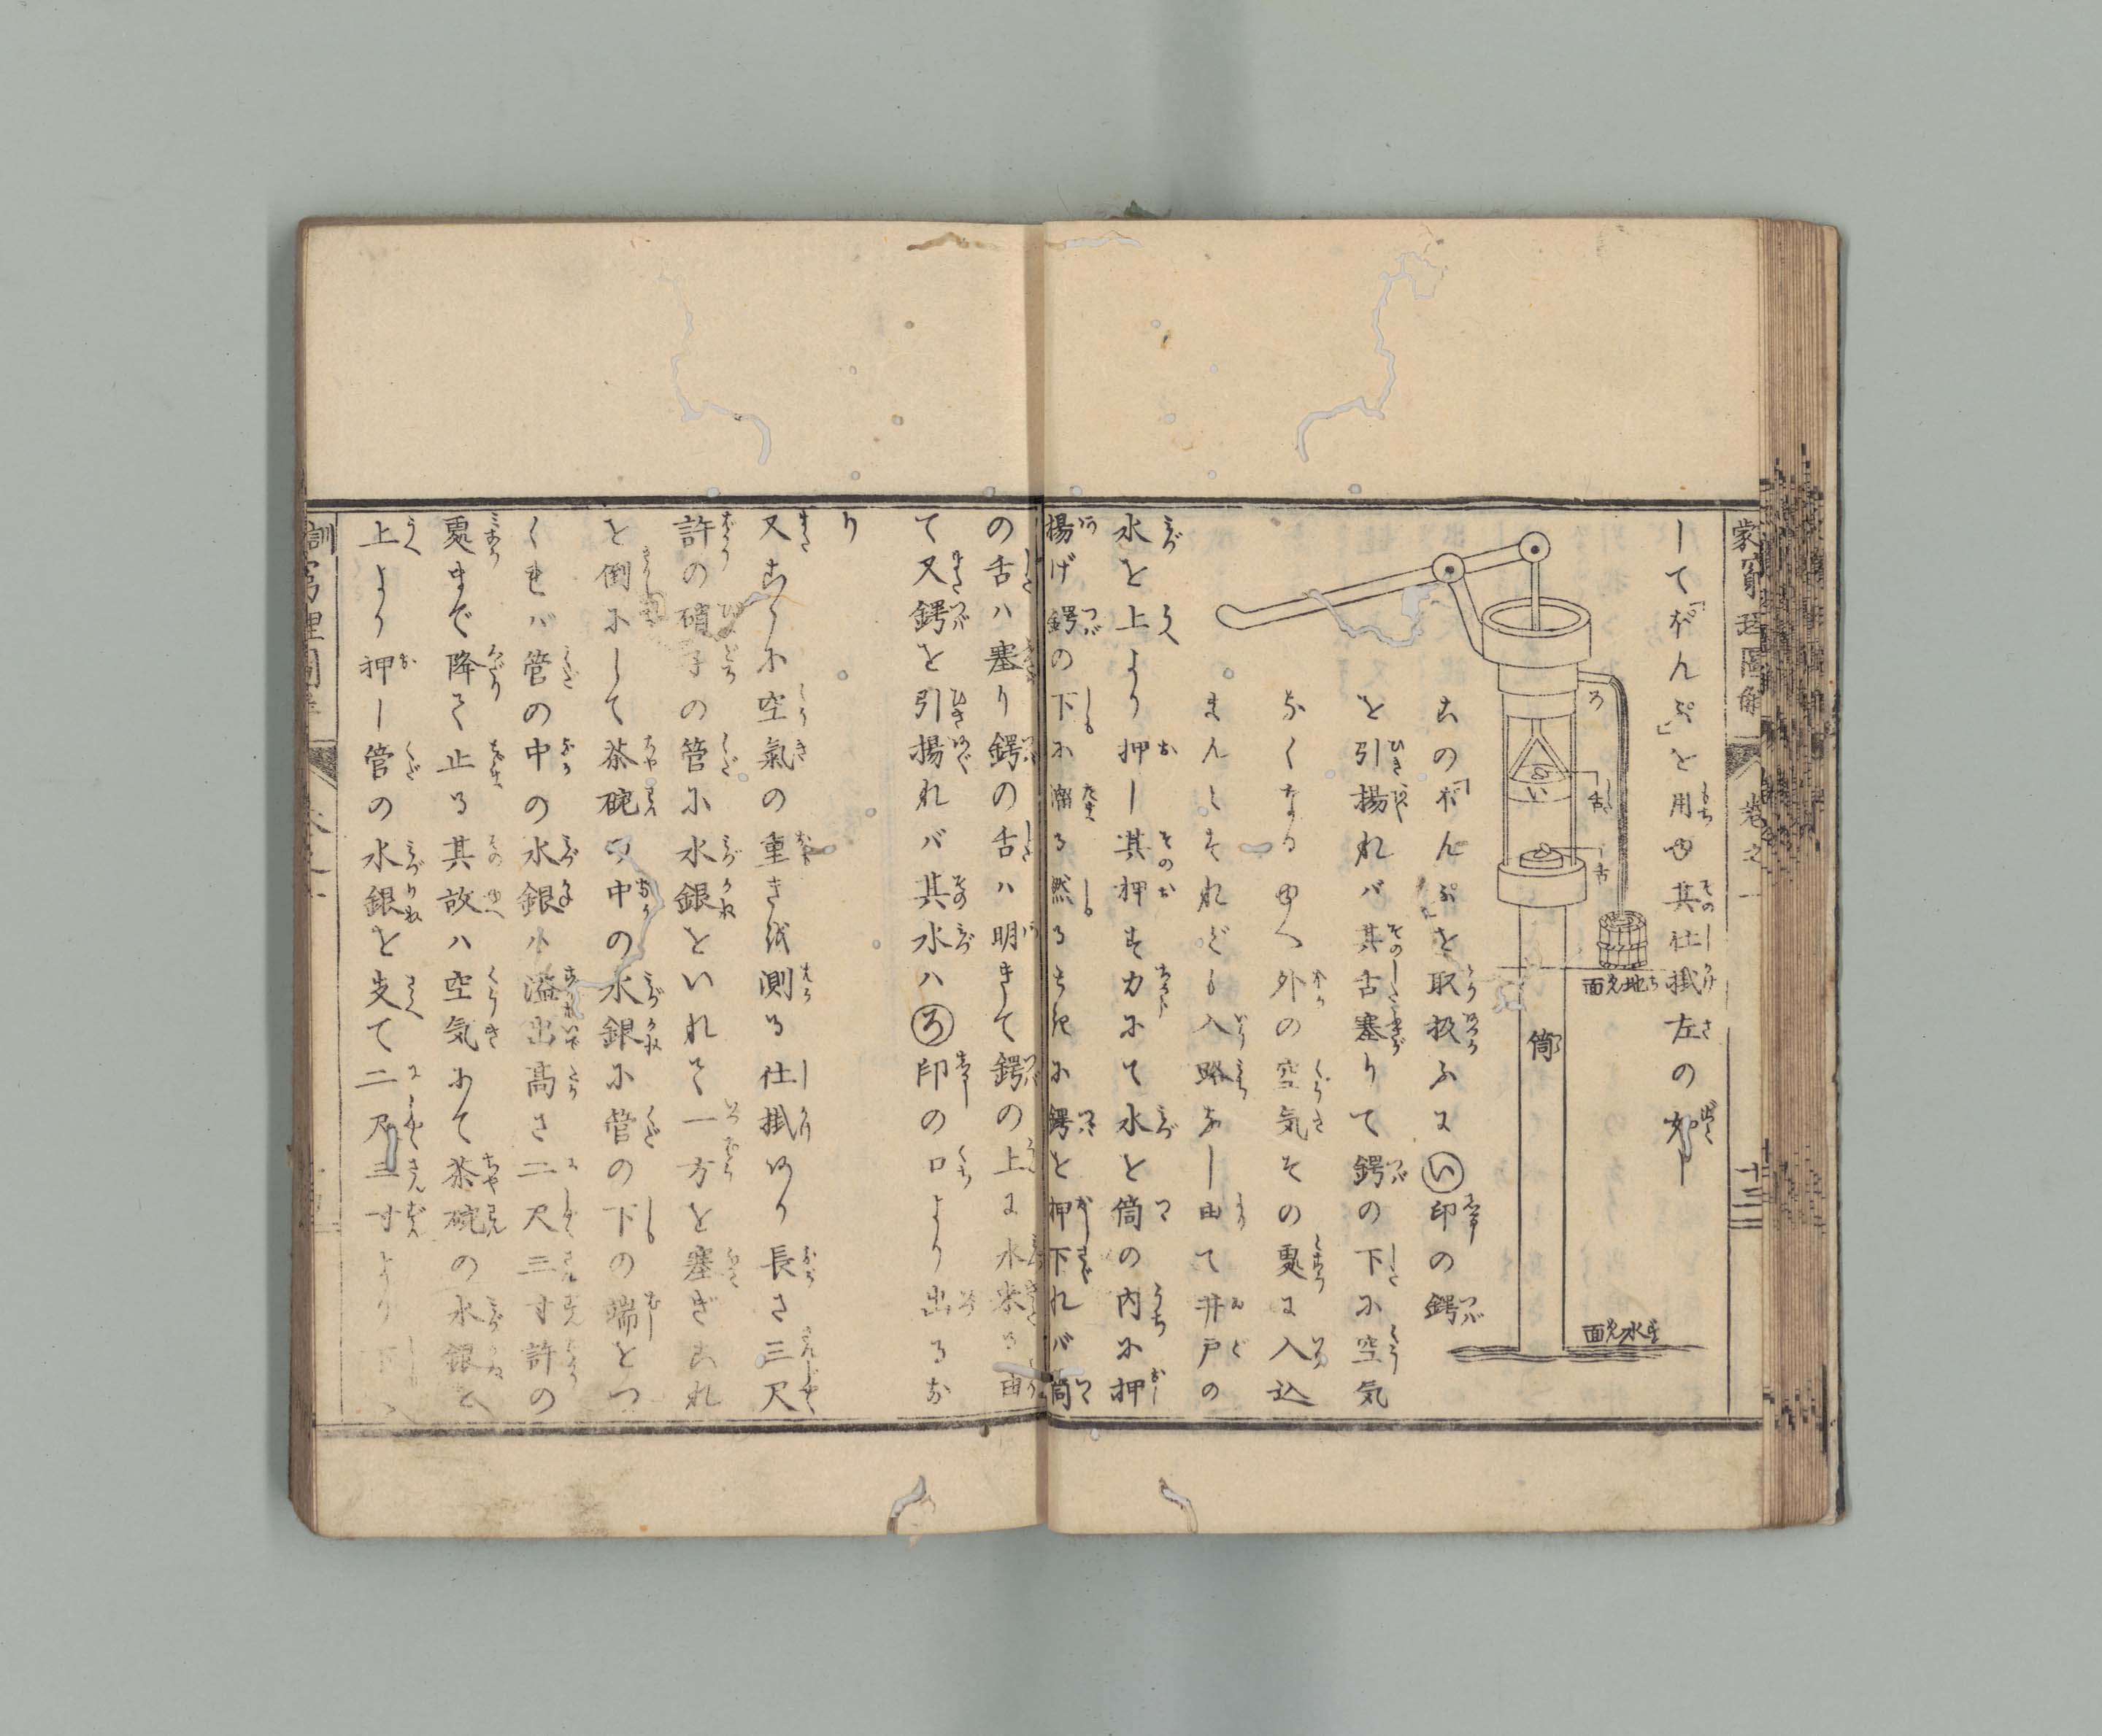 蒙窮理圖解 卷之一 十三
して「ぽんぷ」を用ゆ其仕掛左の如し
ろ
舌
い
舌
地面
筒
水面
この「ぽんぷ」を取扱ふに㋑印の鍔
を引揚れバ其舌塞りて鍔の下に空気
なくなるゆへ外の空気その處に入込
まんとすれども入路なし由て井戸の
水を上より押し其押す力にて水を筒の内に押
揚げ鍔の下に溜る然るときに鍔を押下れバ筒
の舌ハ塞り鍔の舌ハ明きて鍔の上に水来る由
て又鍔を引揚れバ其水ハ㋺印の口より出るな
り
又こゝに空氣の重きを測る仕掛あり長さ三尺
許の硝子の管に水銀をいれて一方を塞ぎこれ
を倒にして茶碗の中の水銀に管の下の端をつ
くれバ管の中の水銀ハ溢出高さ二尺三寸許の
處まで降て止る其故ハ空気にて茶碗の水銀を
上より押し管の水銀を支て二尺三寸より下
訓窮理圖